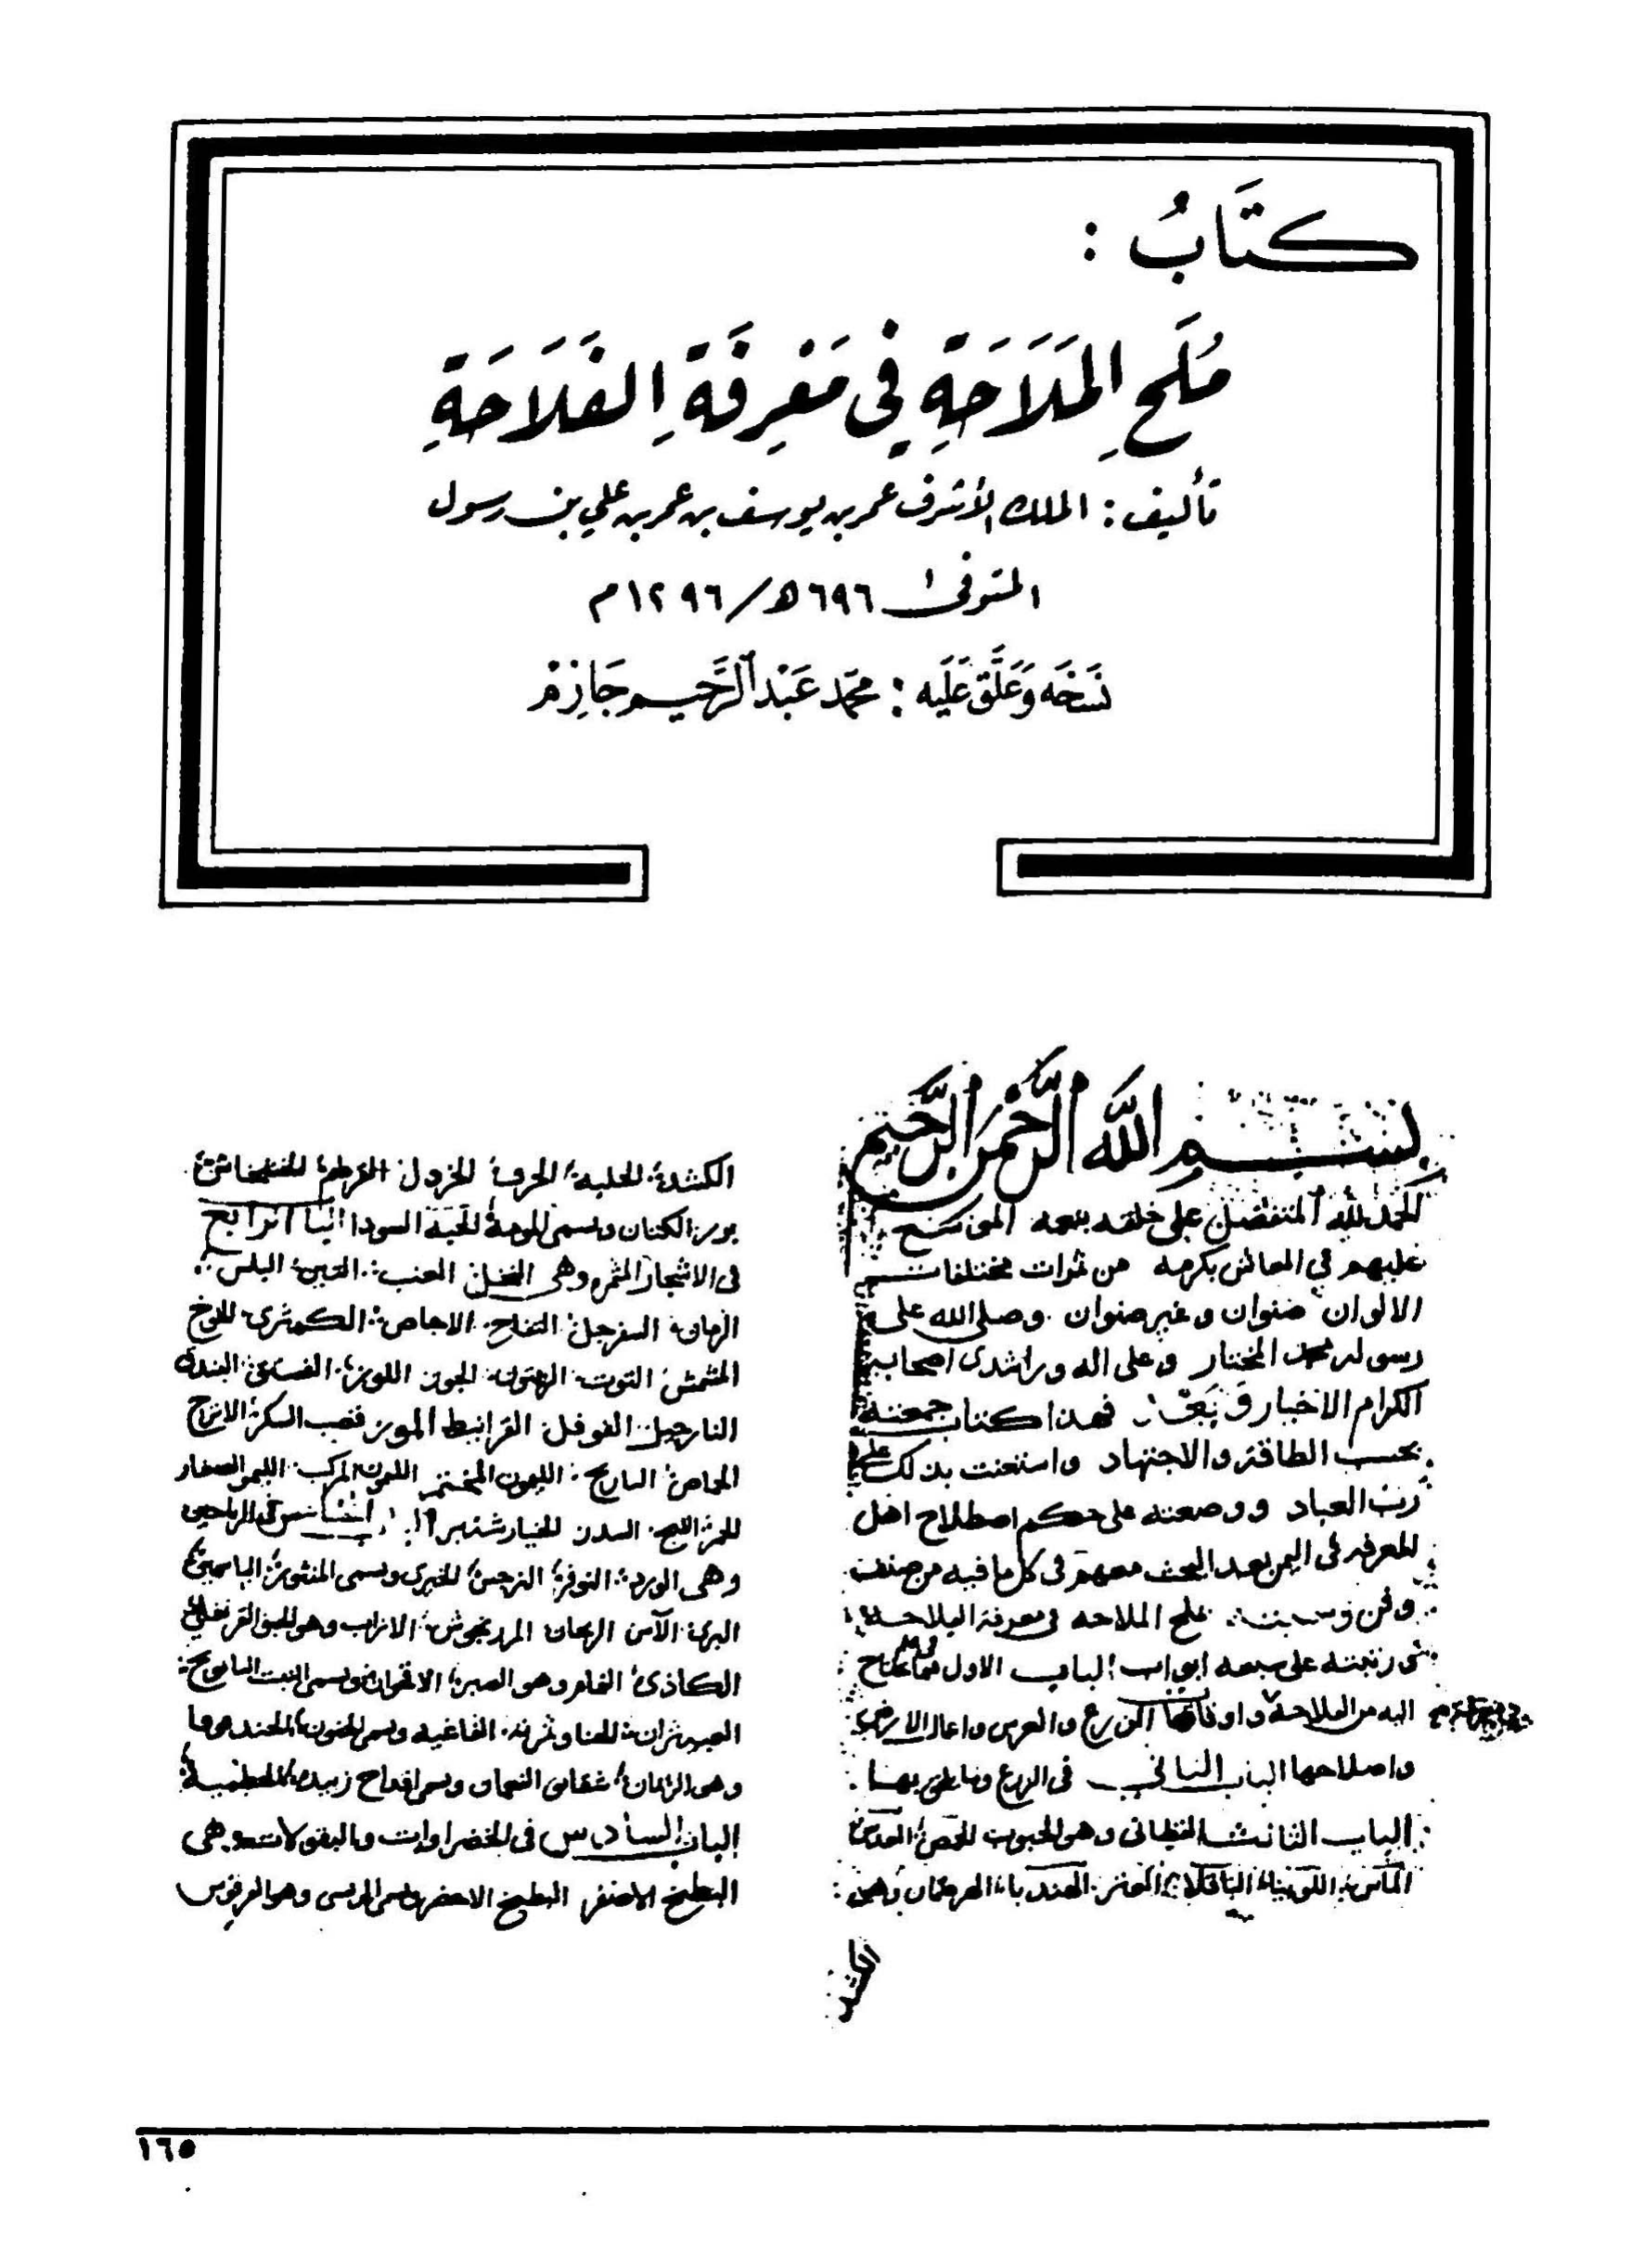 كتَابُ :
مُلَحِ المَلَاحَةِ فِي مَعْرِفَةِ الفَلَاحَةِ
تأليف : الملك الأشرف عمر بن يوسف بن عمر بن علي بن رسول
المتوفى ٦٩٦ هـ / ١٢٩٦ م
نَسَخَه وَعَلَّقَ عَلَيه : محمّد عَبْد الرَّحيم جَازِم
بسم اللّه الرَّحْمن الرَّحيم
الحمد لله المتفضل على خلقه بنعمه الموسع
عليهم في المعائش بكرمه من ثمرات مختلفات
الالوان صنوان وغير صنوان وصلى الله على
رسوله محمد المختار وعلى اله وراشدى اصحابه
الكرام الاخيار وبعد فهذا كتاب جمعته
بحسب الطاقة والاجتهاد واستعنت بذلك على
رب العباد ووضعته على حكم اصطلاح اهل
المعرفه فى اليمن بعد البحث معهم فى كل ما فيه من صنف
وفن وسميته ملح الملاحه فى معرفة الفلاحة
ثم رتبته على سبعه ابواب الباب الاول فيما يحتاج
اليه من الفلاحة واوقاتها الزرع والغرس واعمال الارض
واصلاحها الباب الثاني فى الزرع وما
الباب الثالث القطانى وهى الحبوب الحمص العدس
الماش اللوبياء الباقلاء الهندباء وهى
الكشد
الكشد الحلبة الحرف الخردل القرطم الخشخاش
بزر الكتان ويسمى المومة الحبة السودا الباب الرابع
فى الاشجار المثمره وهى النخل العنب التين البلس
الرمان السفرجل التفاح الاجاص الكمثرى الخوخ
المشمش التوت الزيتون الجوز اللوز الفستق البندق
النارجيل الفوفل القرانيط الموز قصب السكر الاترج
الحماض النارنج الليمون المختم الليمون المركب الليم الصغار
السدر الخيار شنبر الباب الخامس فى الرياحين
وهى الورد النوفر النرجس الخيرى ويسمى المنثور الياسمين
البرى الآس الريحان المردنجوش الازاب وهو الحبق القرنفلى
الكاذى النمام وهو الصبر الاقحوان ويسمى البابونج
العبيثران الحنا وثمرته الفاغيه ويسمى الحنون
وهو الرمان شقائق النعمان ويسمى اقداح زبيده الخطمية
الباب السادس فى الخضراوات والبقولات وهى
البطيخ الاصفر البطيخ الاخضر ويسمى
١٦٥